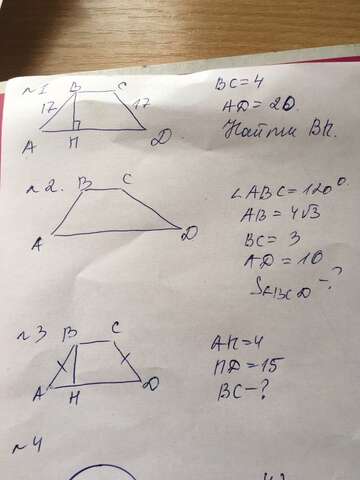 №1 B C BC=4
17 17 AD=20.
A H D Найти BH.
№2. B C ∠ABC=120°.
AB=4√3
BC=3
A D AD=10
SABCD-?
№3 B C AH=4
HD=15
A H D BC-?
№4